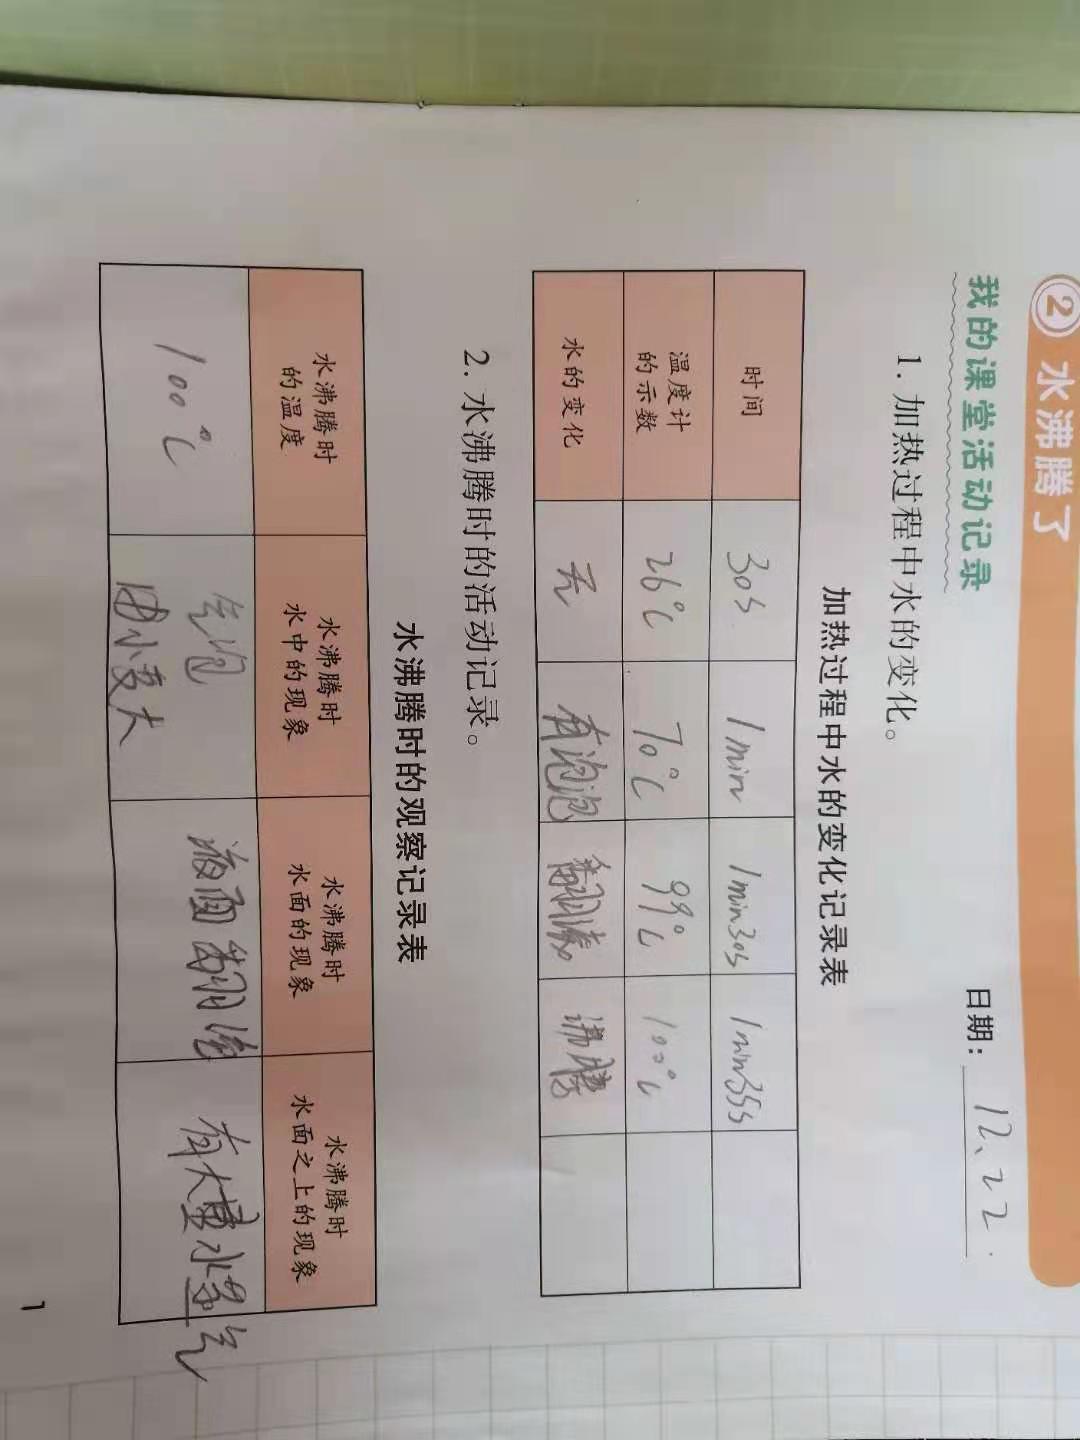 ② 水沸腾了
我的课堂活动记录
日期: 12、22.
1. 加热过程中水的变化。
加热过程中水的变化记录表
时间 30s 1min 1min30s 1min35s
温度计的示数 26℃ 70℃ 99℃ 100℃
水的变化 无 有泡泡 翻滚 沸腾
2. 水沸腾时的活动记录。
水沸腾时的观察记录表
水沸腾时的温度 水沸腾时水中的现象 水沸腾时水面的现象 水沸腾时水面之上的现象
100℃ 气泡由小变大 液面翻滚 有大量水蒸气
7